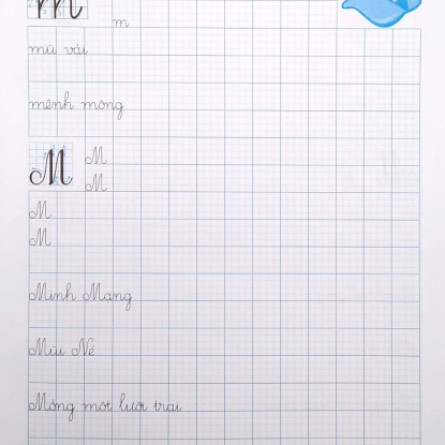 m
m
mũ vải
mênh mông
M M
M
M
M
Minh Mạng
Mũi Né
Mồng một lưỡi trai